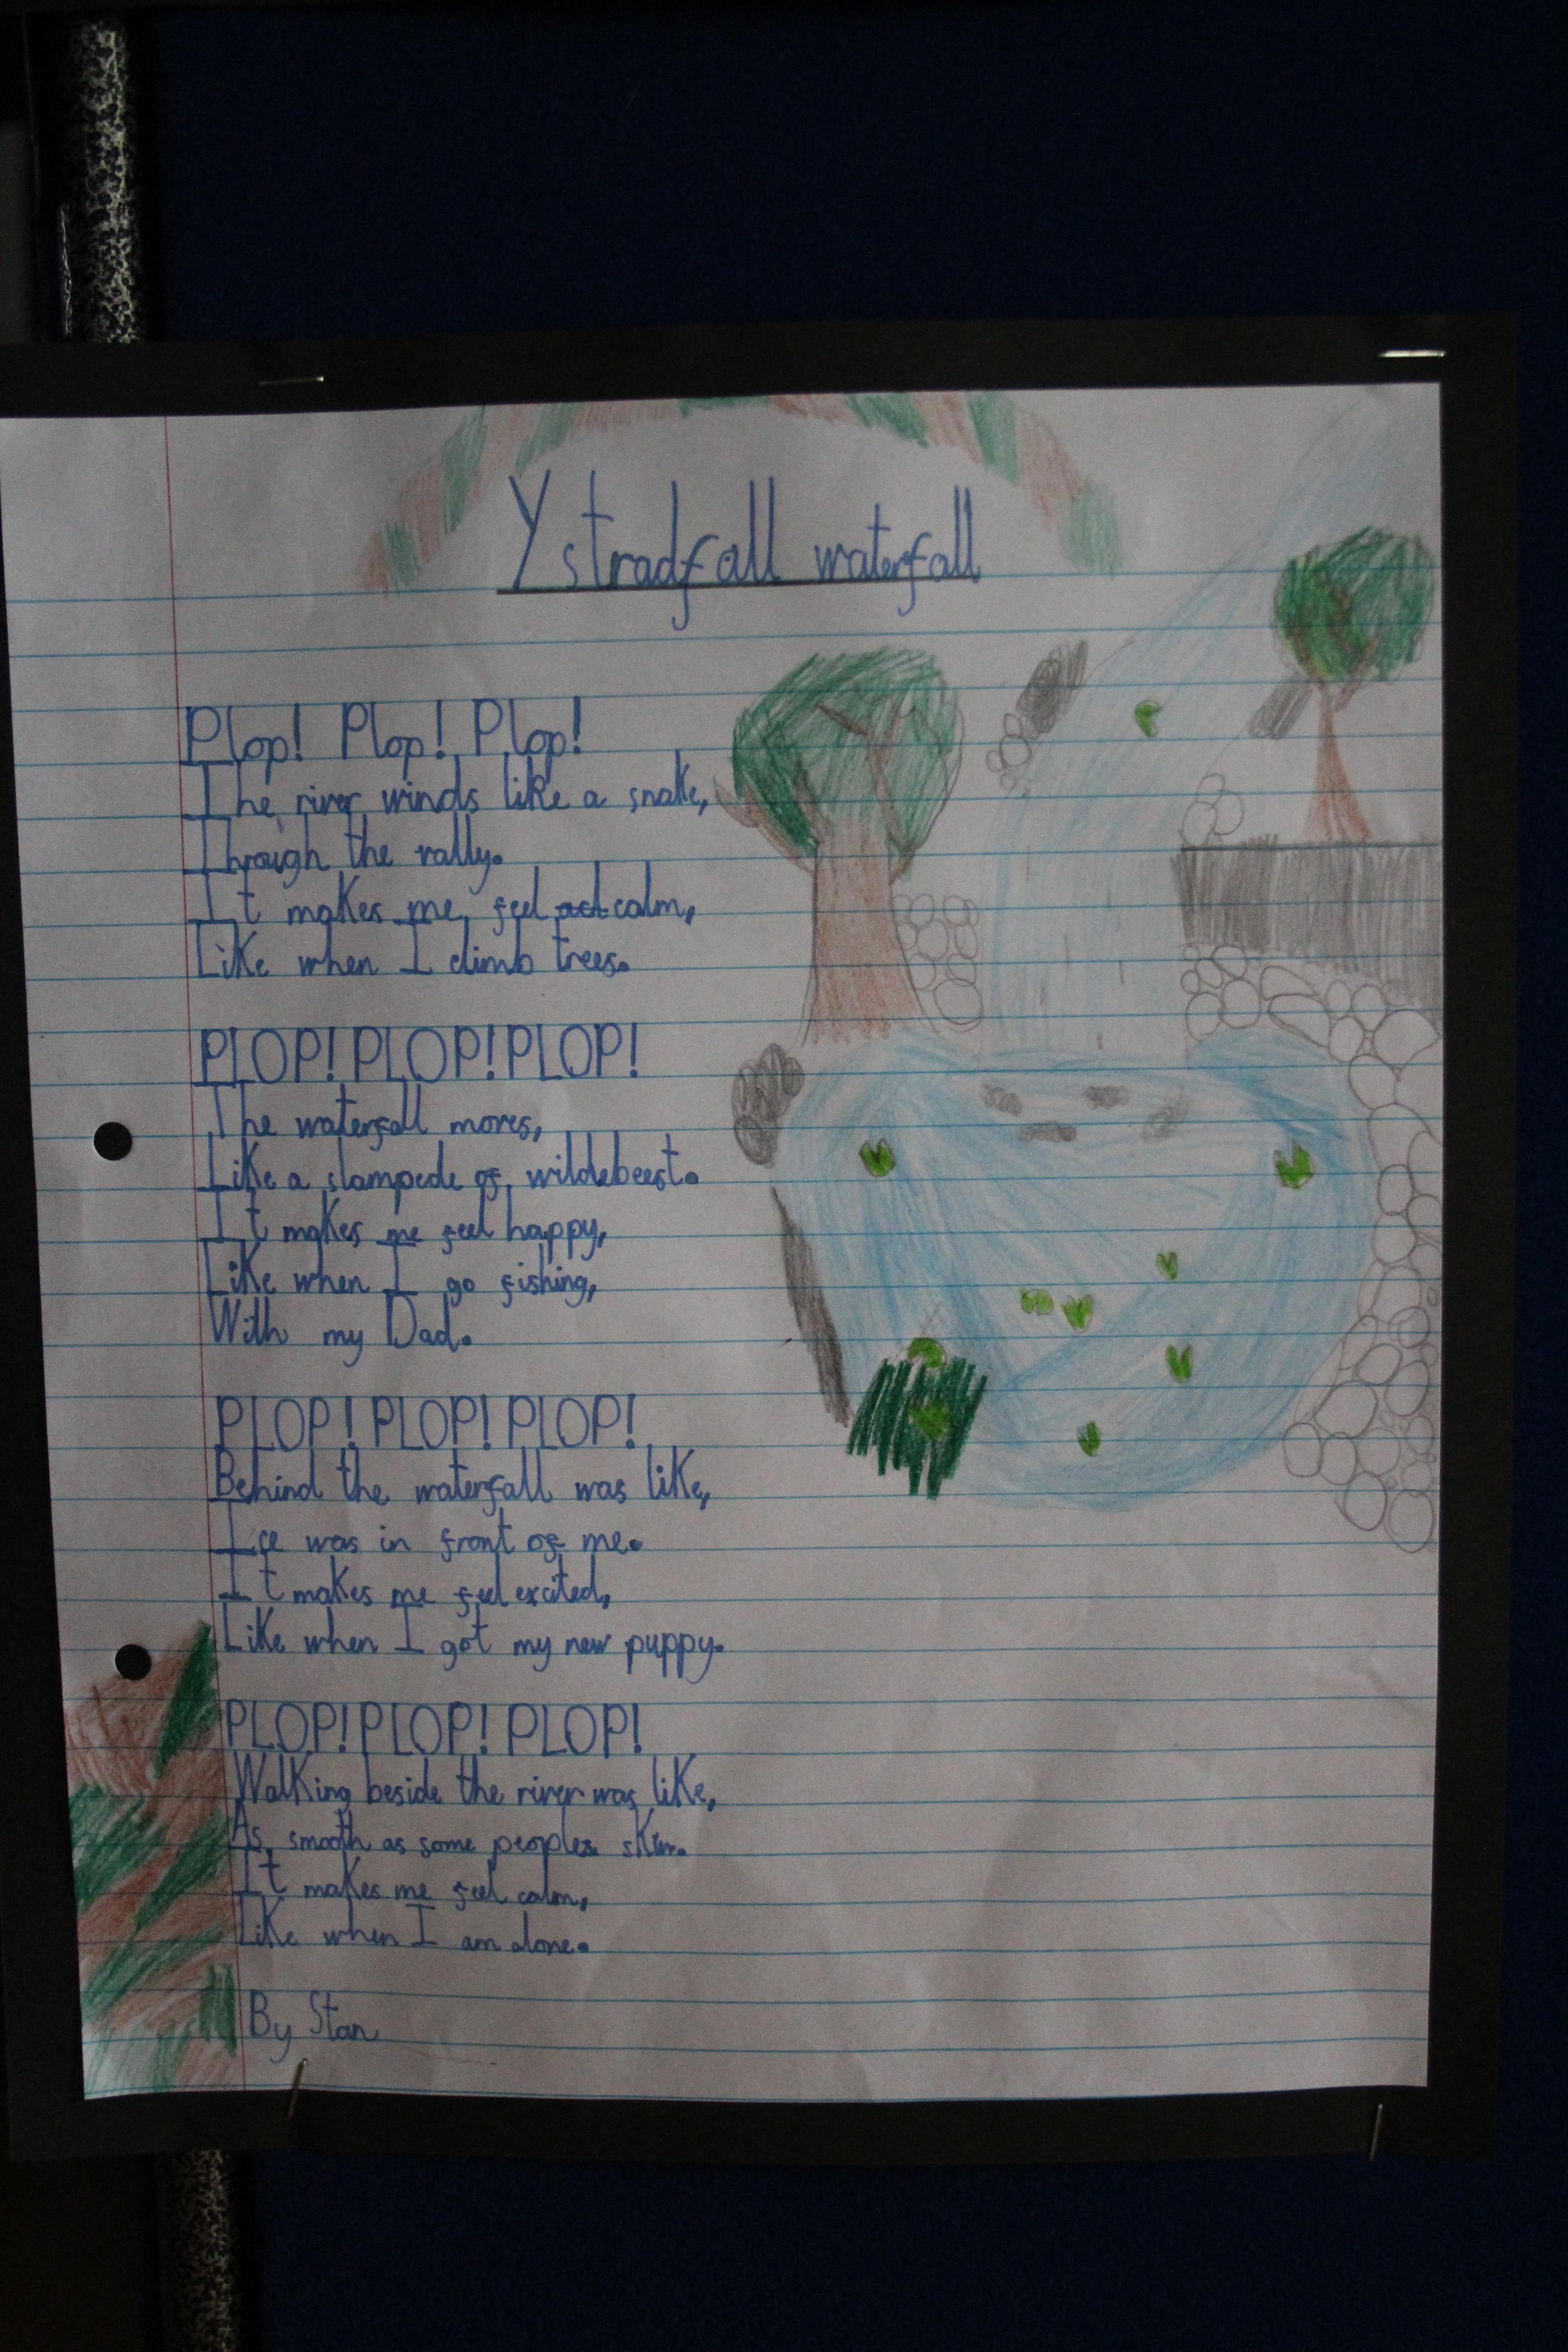 Ystradfall waterfall
Plop! Plop! Plop!
The river winds like a snake,
Through the vally.
It makes me feel calm,
Like when I climb trees.
PLOP! PLOP! PLOP!
The waterfall moves,
Like a stampede of wildebeest.
It makes me feel happy,
Like when I go fishing,
With my Dad.
PLOP! PLOP! PLOP!
Behind the waterfall was like,
Ice was in front of me.
It makes me feel excited,
Like when I got my new puppy.
PLOP! PLOP! PLOP!
Walking beside the river was like,
As smooth as some peoples skin.
It makes me feel calm,
Like when I am alone.
By Stan